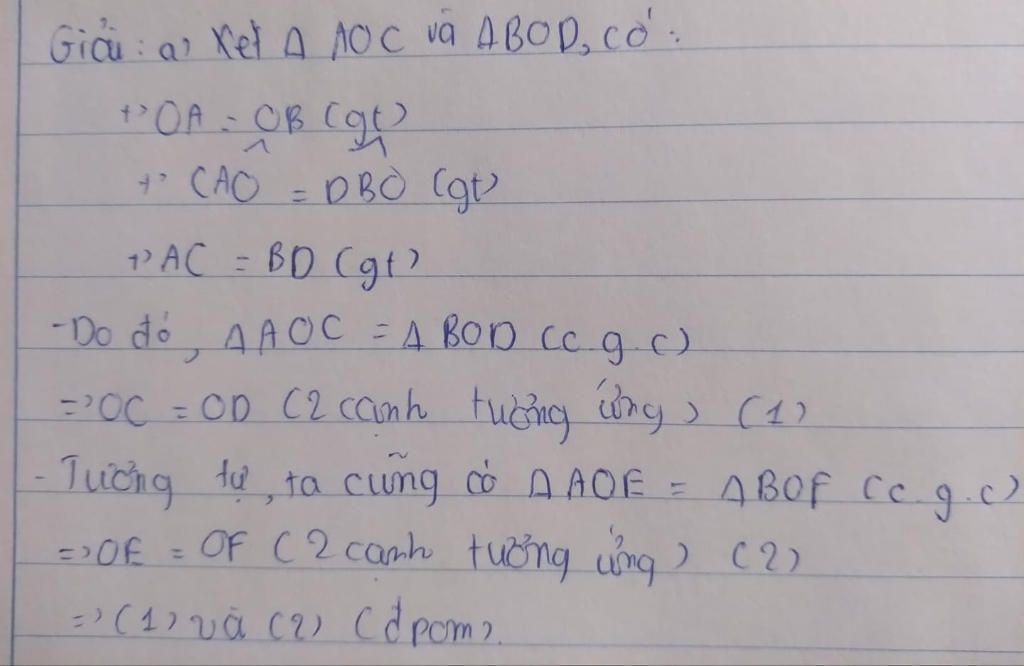 Giải: a) Xét Δ AOC và ΔBOD, có:
+) OA = OB (gt)
+) CAO^ = DBO^ (gt)
+) AC = BD (gt)
- Do đó, ΔAOC = ΔBOD (c.g.c)
=> OC = OD (2 cạnh tưởng ứng) (1)
- Tương tự, ta cũng có ΔAOE = ΔBOF (c.g.c)
=> OE = OF (2 cạnh tưởng ứng) (2)
=> (1) và (2) (đpcm).